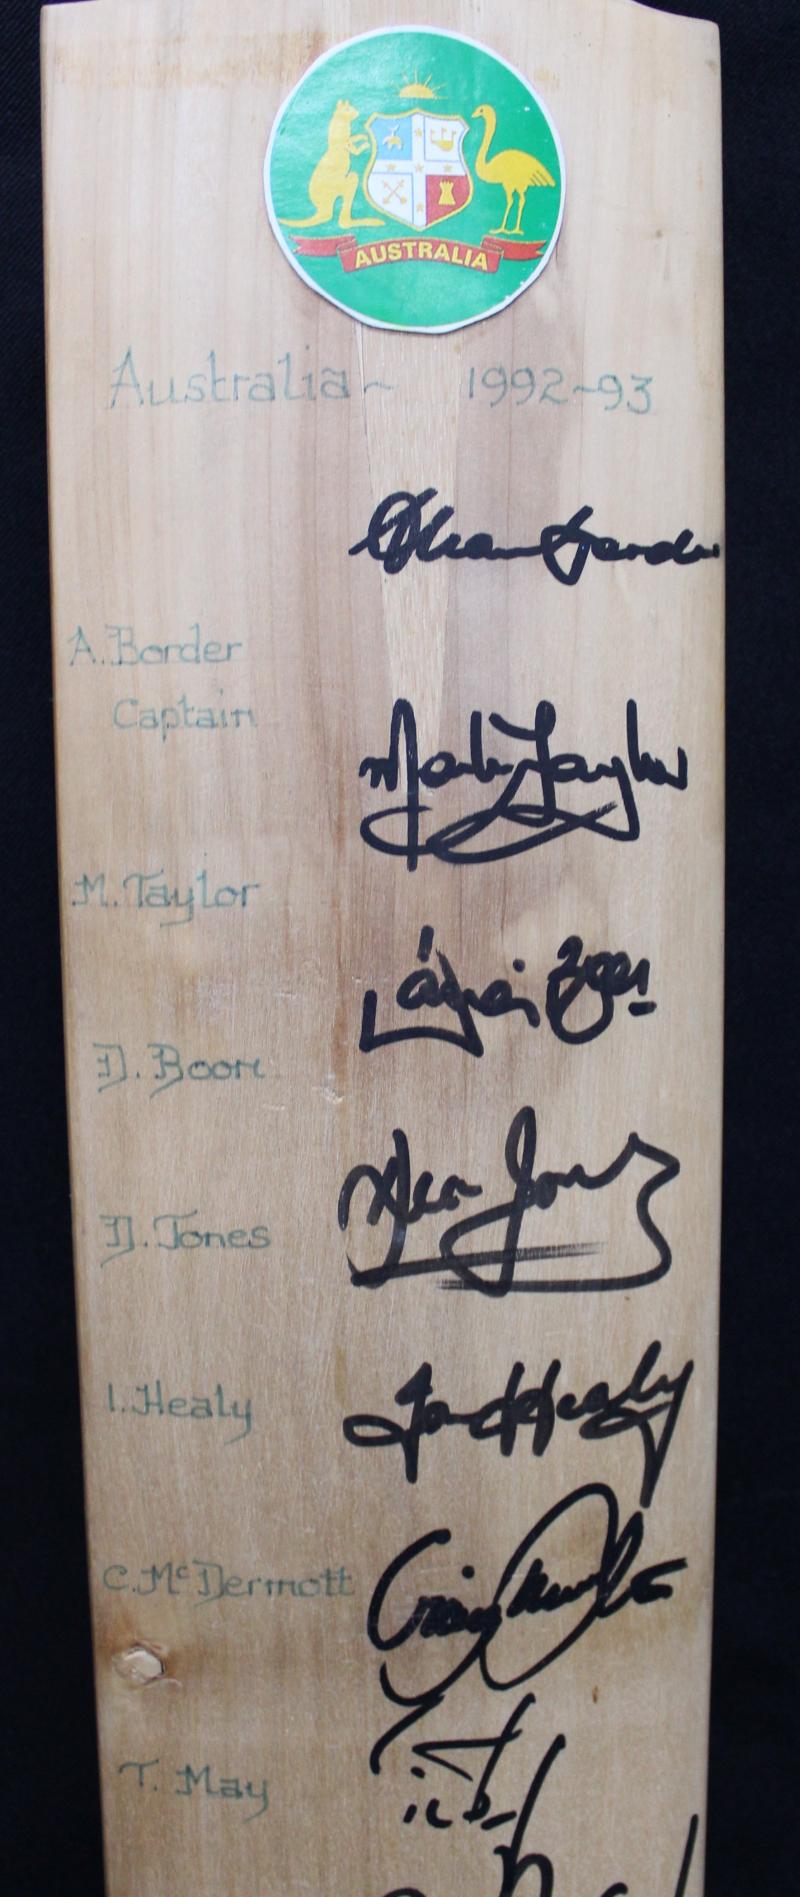 AUSTRALIA
Australia~ 1992~93
Allan Border
A. Border
Captain
Mark Taylor
M. Taylor
David Boon
D. Boon
Dean Jones
D. Jones
Ian Healy
I. Healy
Craig McDermott
C. McDermott
T. May